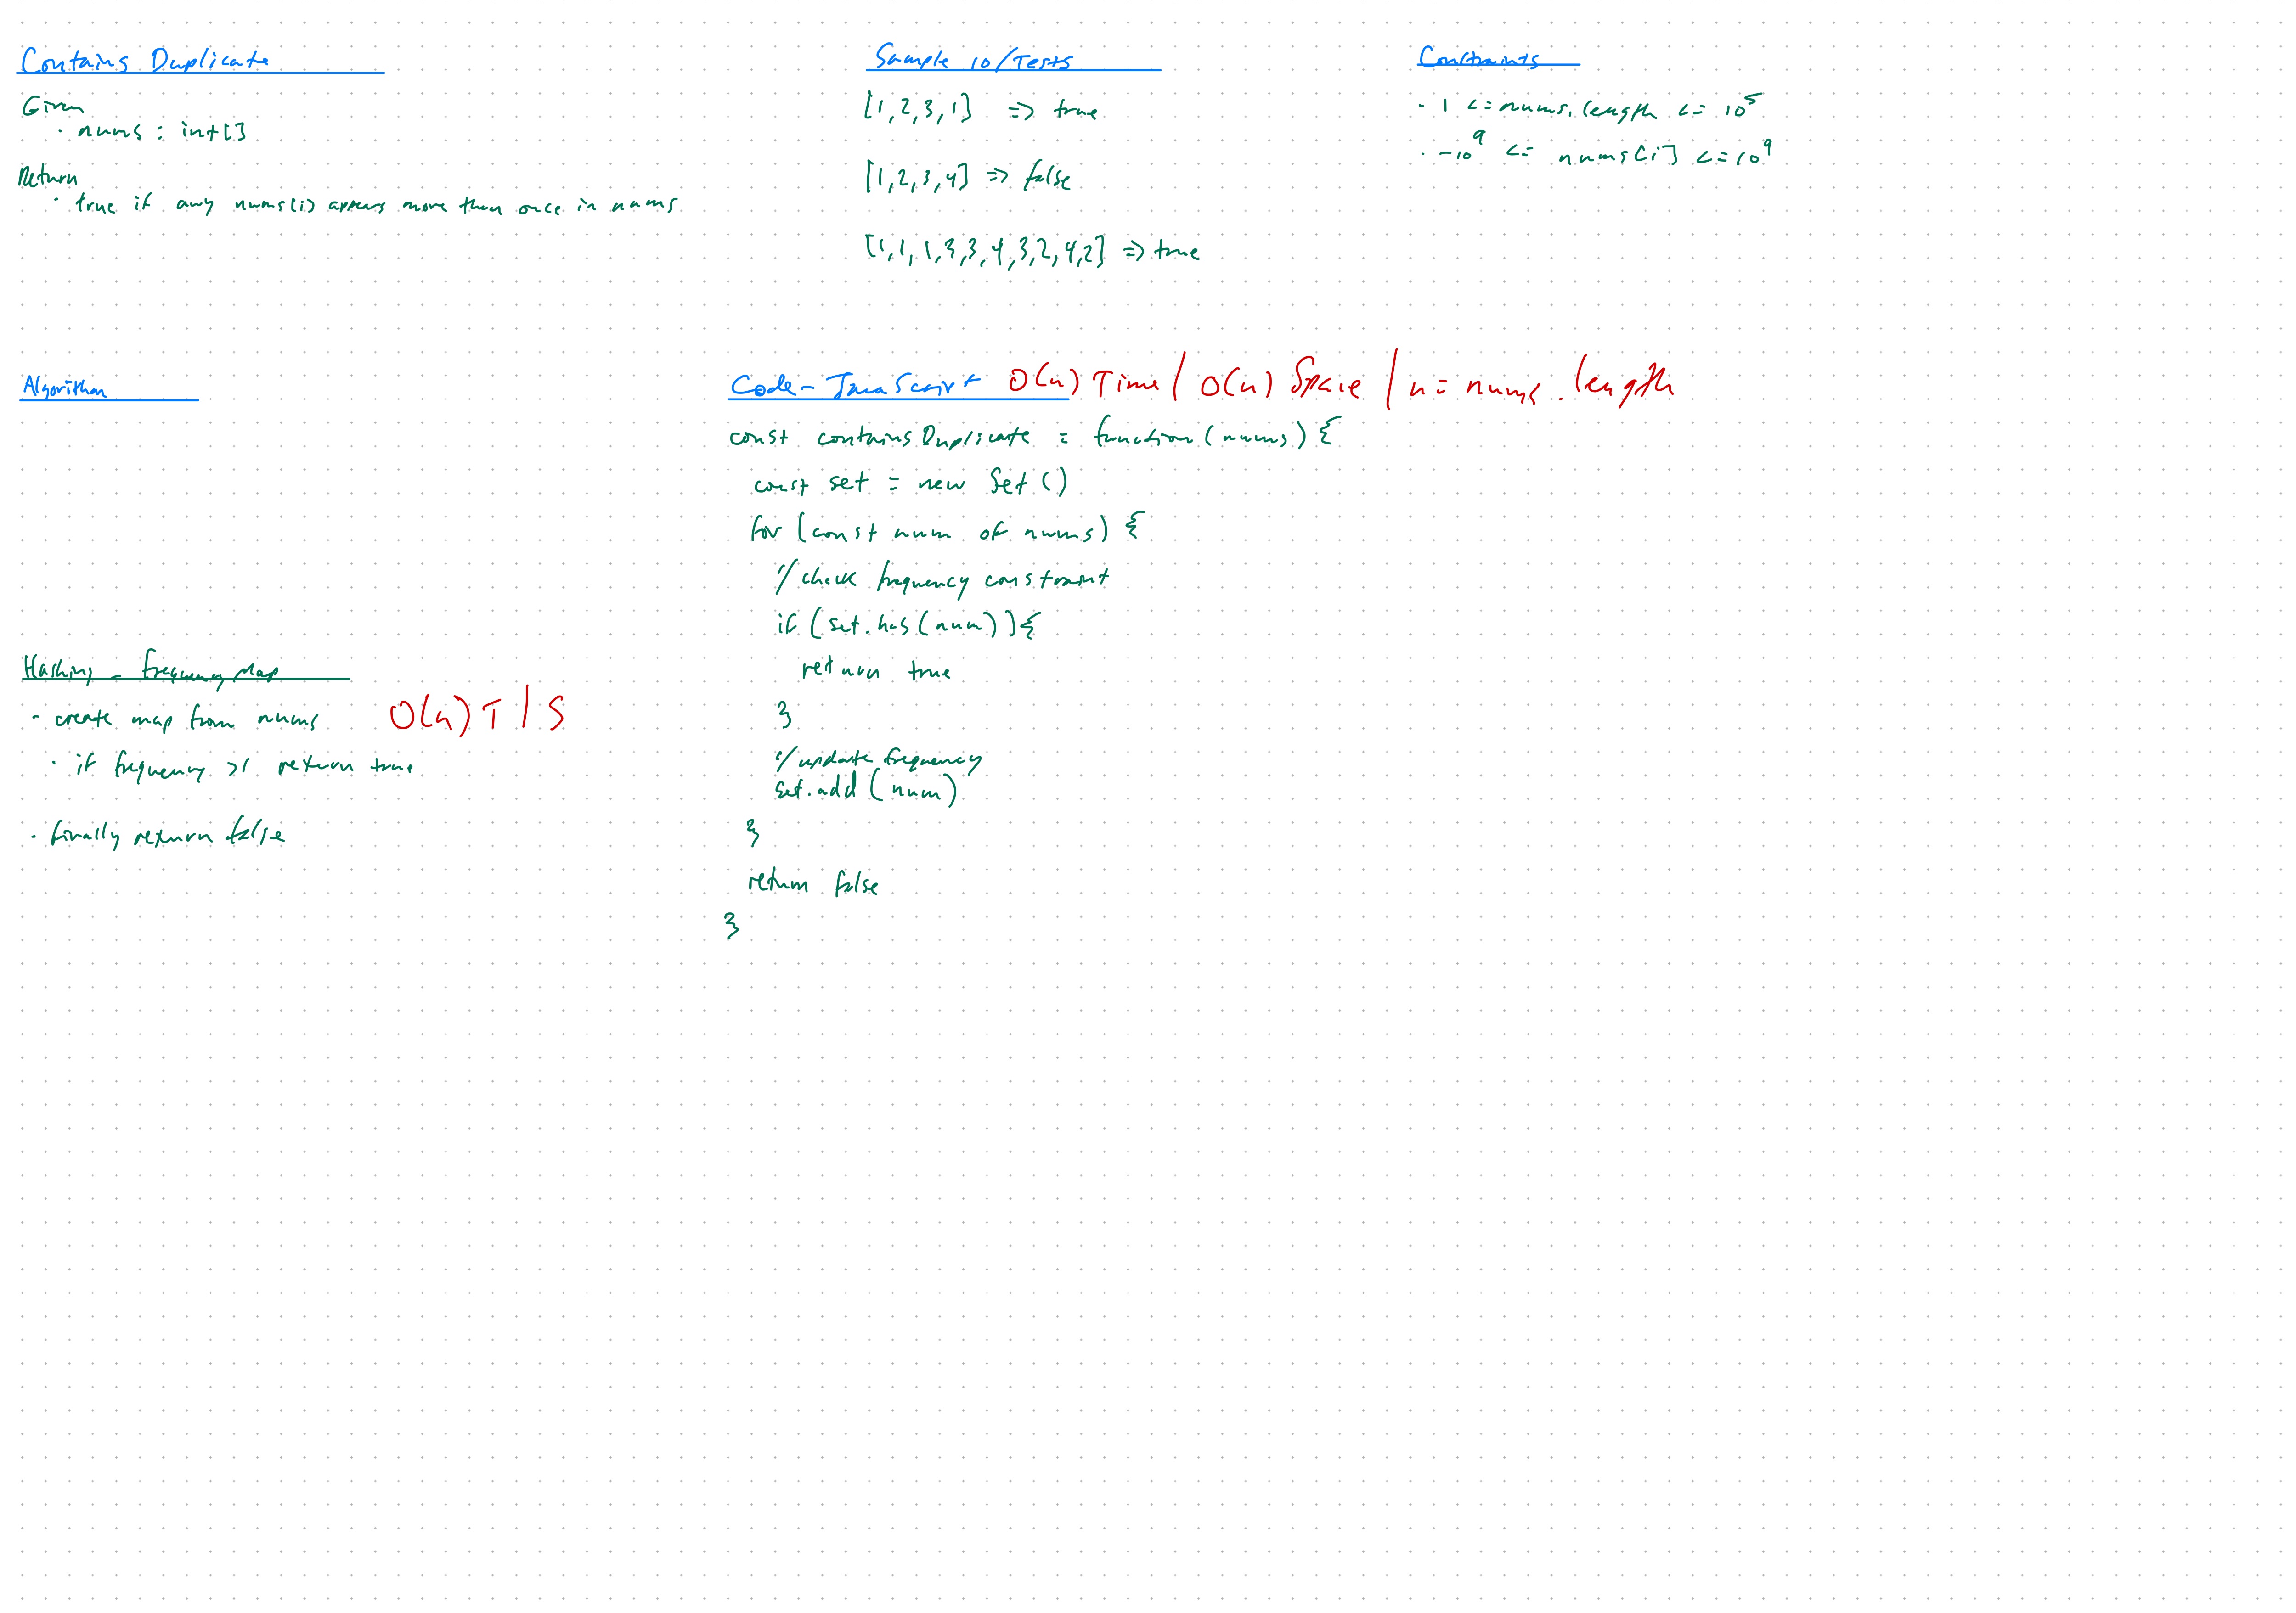 Contains Duplicate
Given
· nums : int[]
Return
· true if any nums[i] appears more than once in nums
Sample IO/Tests
[1,2,3,1] => true
[1,2,3,4] => false
[1,1,1,3,3,4,3,2,4,2] => true
Constraints
· 1 <= nums.length <= 10^5
· -10^9 <= nums[i] <= 10^9
Algorithm
Hashing - Frequency Map
- create map from nums O(n) T | S
· if frequency >1 return true
· finally return false
Code - JavaScript O(n) Time | O(n) Space | n = nums.length
const containsDuplicate = function(nums) {
const set = new Set()
for (const num of nums) {
// check frequency constraint
if (set.has(num)){
return true
}
// update frequency
set.add(num)
}
return false
}